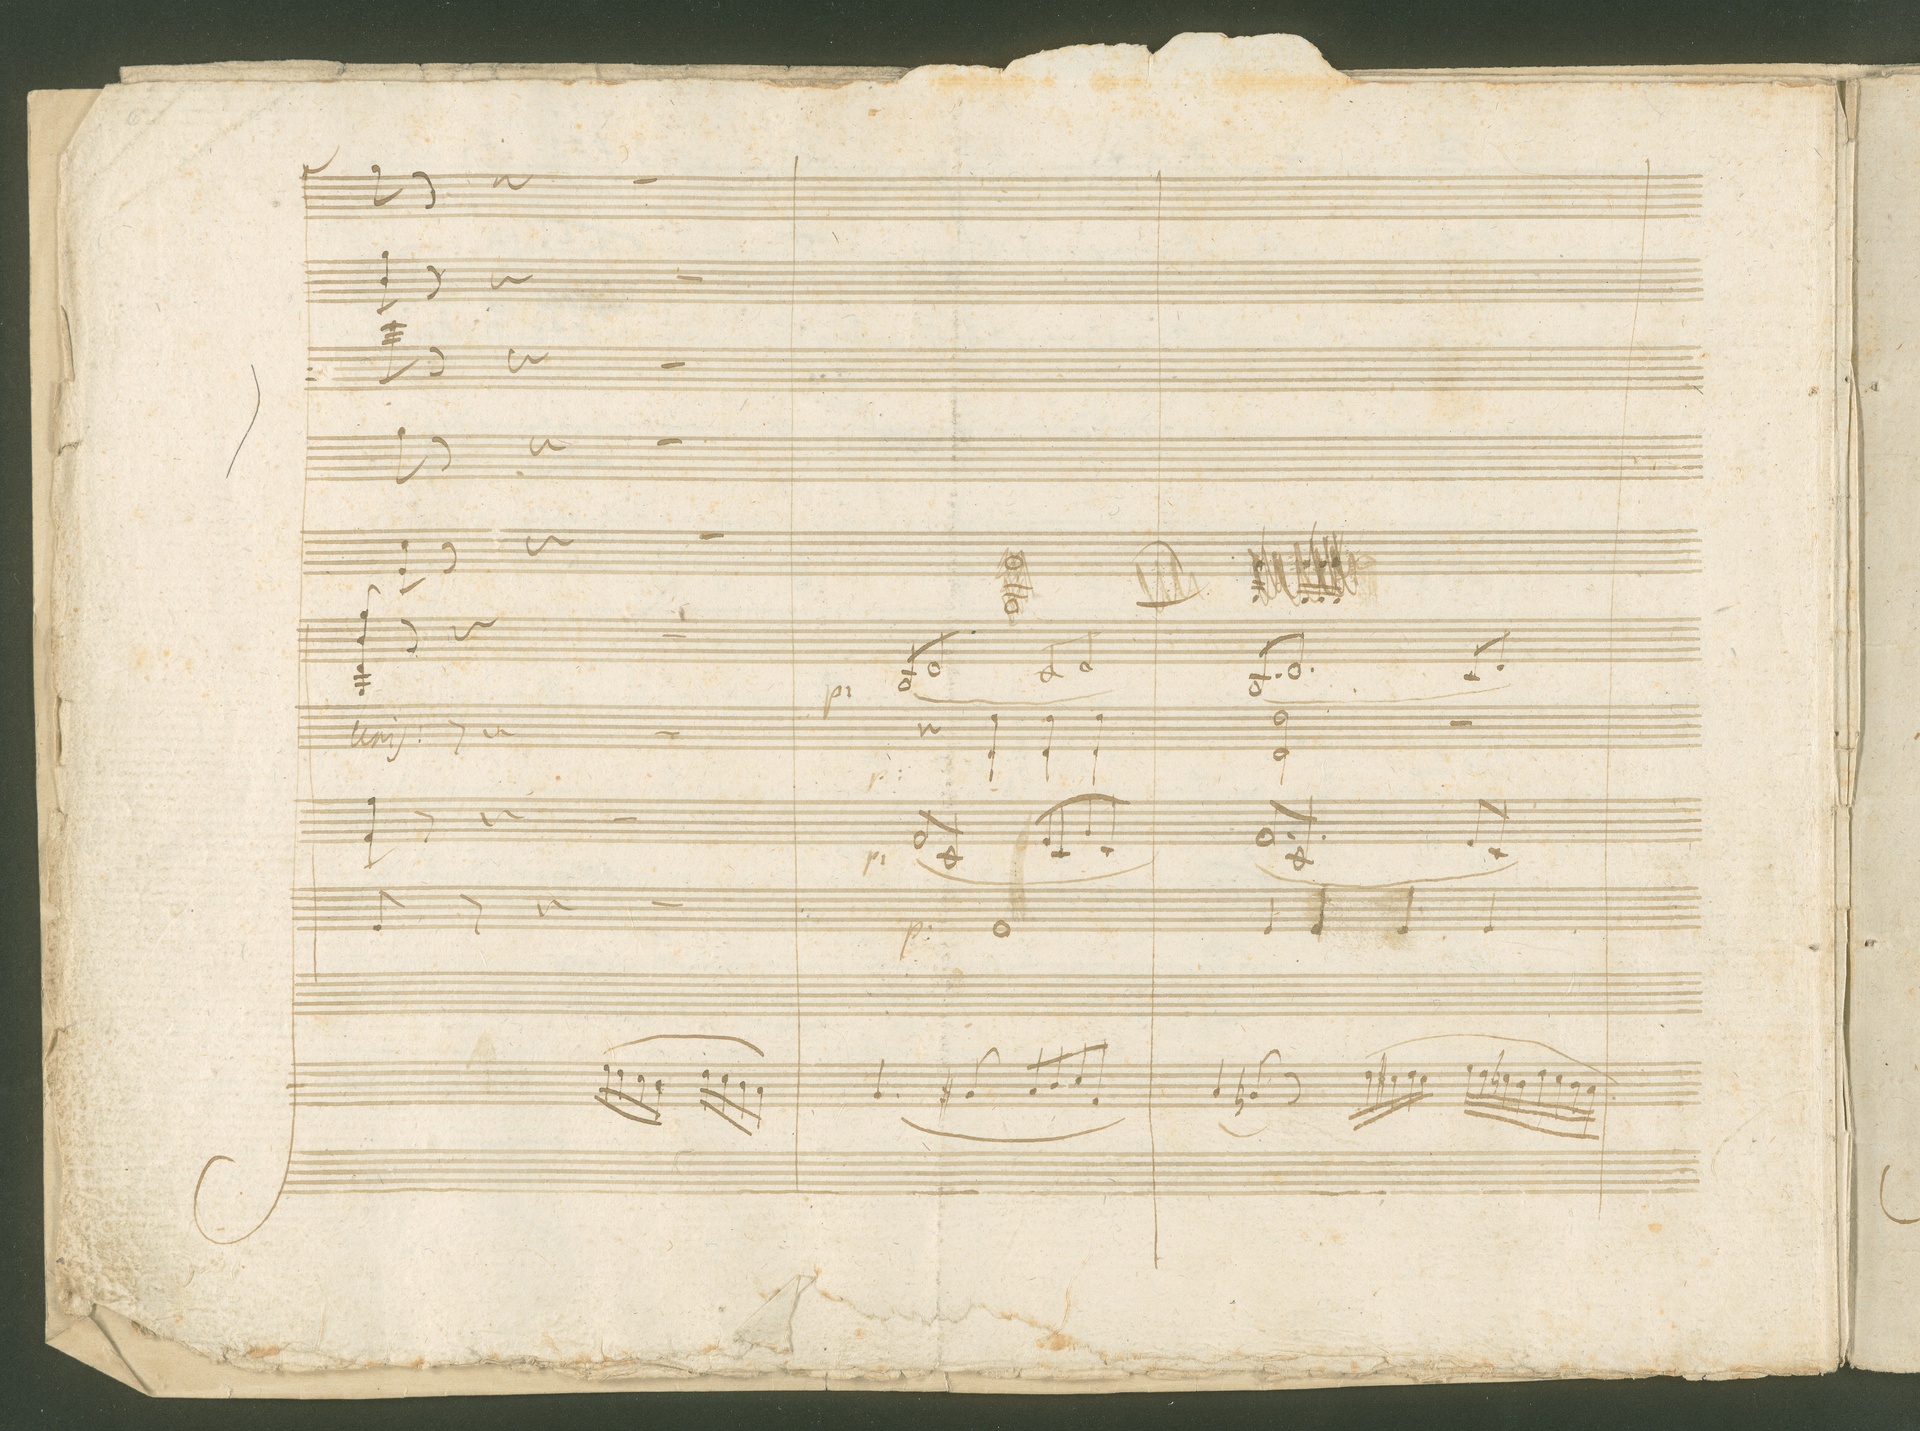 p:
unis:
p:
p:
p: